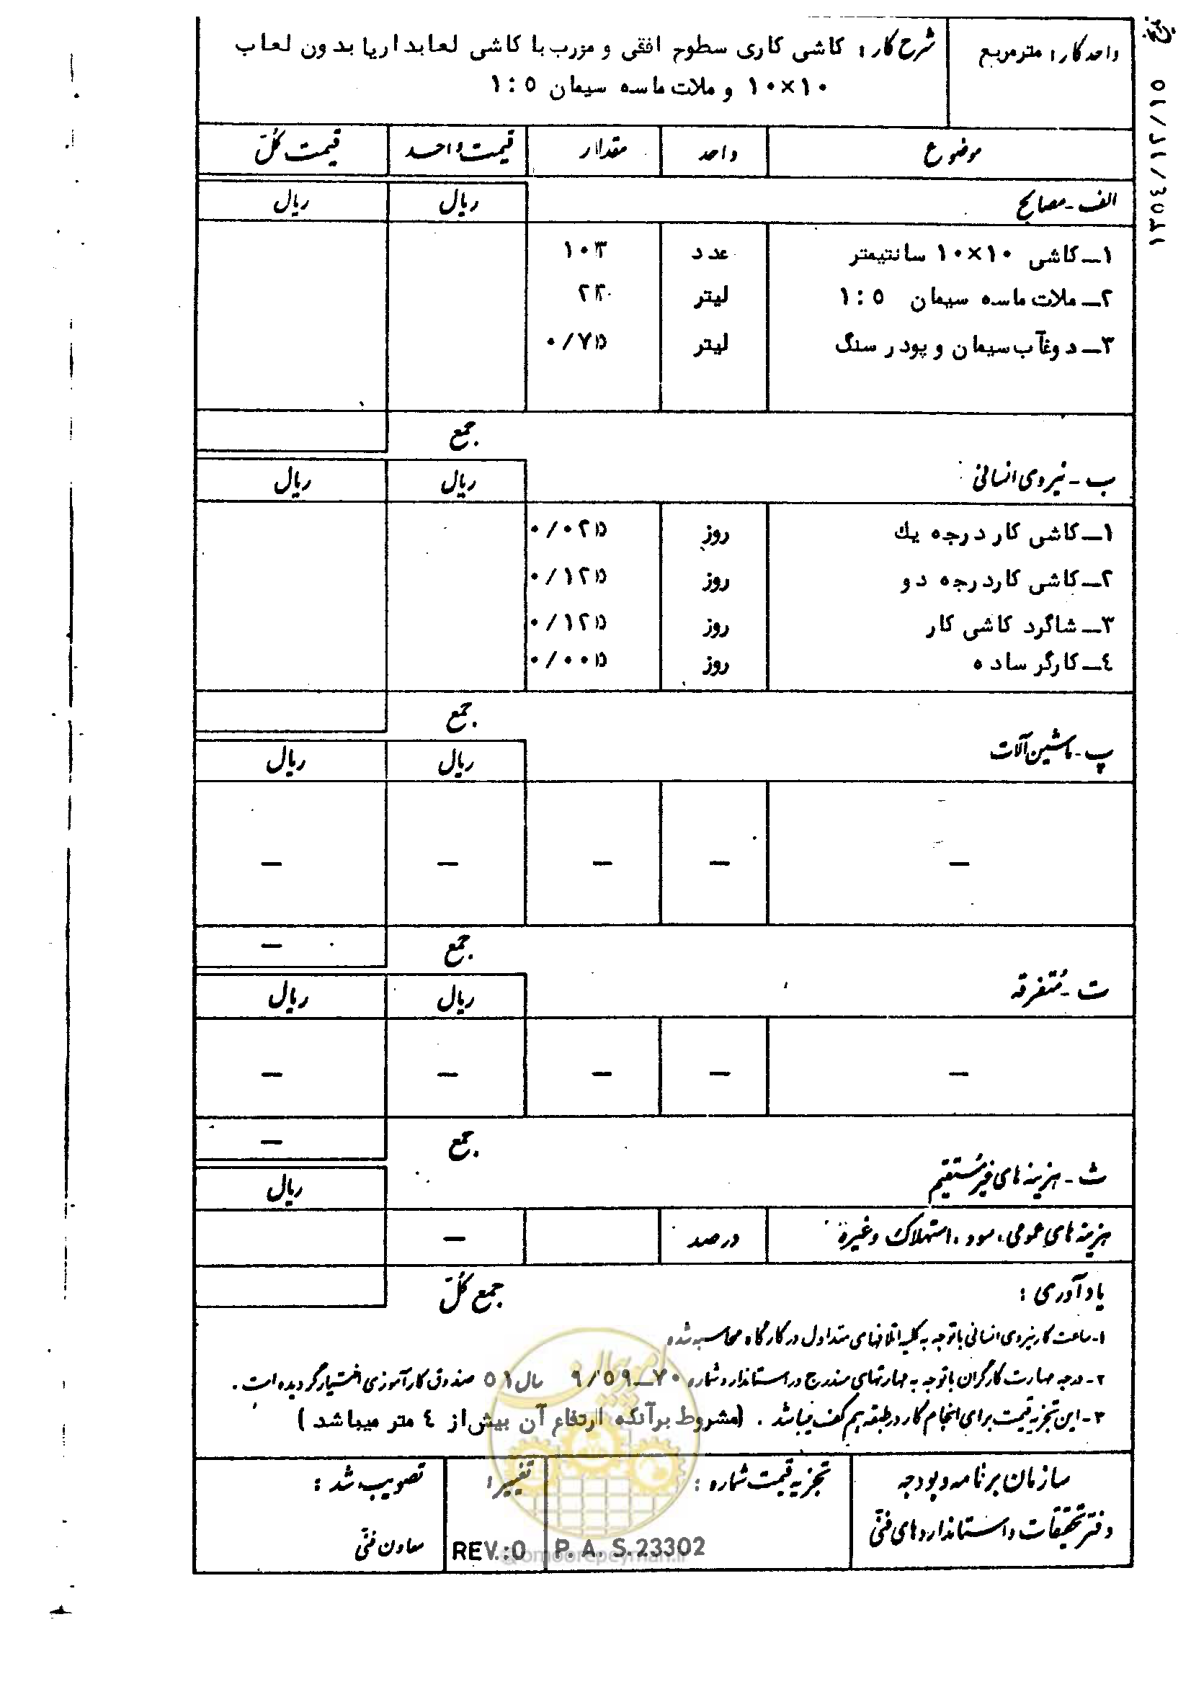 تاریخ ١٣٥٤/١٢/١٥
واحد کار: مترمربع
شرح کار: کاشی کاری سطوح افقی و مورب با کاشی لعابدار یا بدون لعاب
١٠×١٠ و ملات ماسه سیمان ٥ : ١
موضوع واحد مقدار قیمت واحد قیمت کل
الف - مصالح ریال ریال
١ـ کاشی ١٠×١٠ سانتیمتر عدد ١٠٣
٢ـ ملات ماسه سیمان ٥ : ١ لیتر
٣ـ دوغآب سیمان و پودر سنگ لیتر ٠/٧٥
جمع
ب - نیروی انسانی ریال ریال
١ـ کاشی کار درجه یك روز ٠/٠٢٥
٢ـ کاشی کار درجه دو روز ٠/١٢٥
٣ـ شاگرد کاشی کار روز ٠/١٢٥
٤ـ کارگر ساده روز ٠/٠٠٥
جمع
پ - ماشین آلات ریال ریال
— — — — —
جمع —
ت - متفرقه ریال ریال
— — — — —
جمع —
ث - هزینه های غیرمستقیم ریال
هزینه های عمومی، سود، استهلاک وغیره درصد —
جمع کل
یادآوری :
١- ساعت کار نیروی انسانی با توجه به کلیه اتلافهای متداول در کارگاه محاسبه شده
٢- درجه مهارت کارگران با توجه به مهارتهای مندرج در استاندارد شماره ٧٠ــ٩/٥٩ سال ٥١ صندوق کارآموزی اختیار گردیده است .
٣- این تجزیه قیمت برای انجام کار در طبقه هم کف میباشد . (مشروط برآنکه ارتفاع آن بیش از ٤ متر میباشد )
سازمان برنامه و بودجه
دفتر تحقیقات و استانداردهای فنی
تجزیه قیمت شماره :
P. A. S.23302
تغییر:
REV.:0
تصویب شد :
معاون فنی
امور پیمان
@omoorepeyman.ir